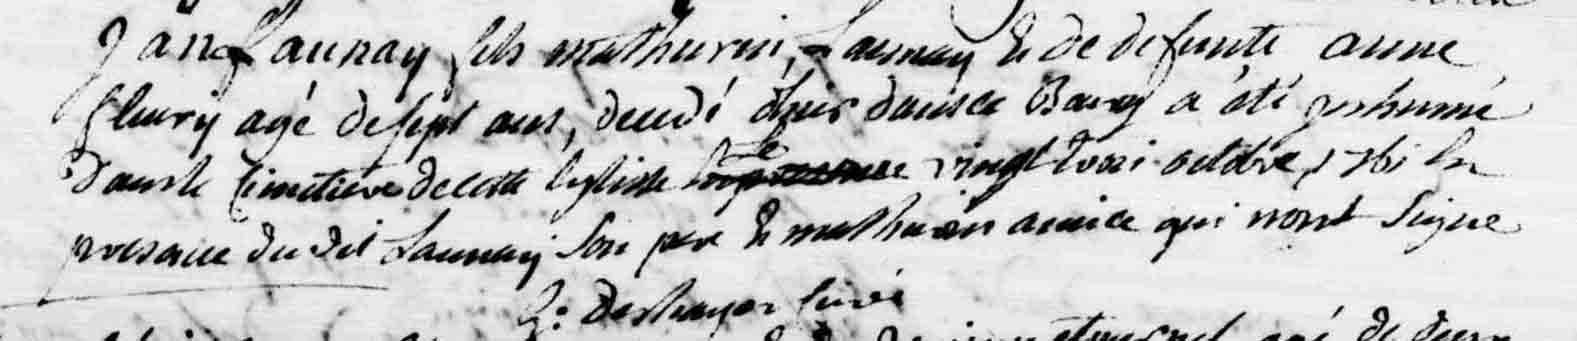 Jan Launay fils mathurin Launay & de defunte anne
fleury agé de sept ans, decedé d'hier dans ce Bourg a été inhumé
dans le Cimetiere de cette Eglise le vingt trois octobre 1761 En
presence du dit Launay son pere & mathurin amice qui n'ont Signe
Deshayes Curé
agé de deux